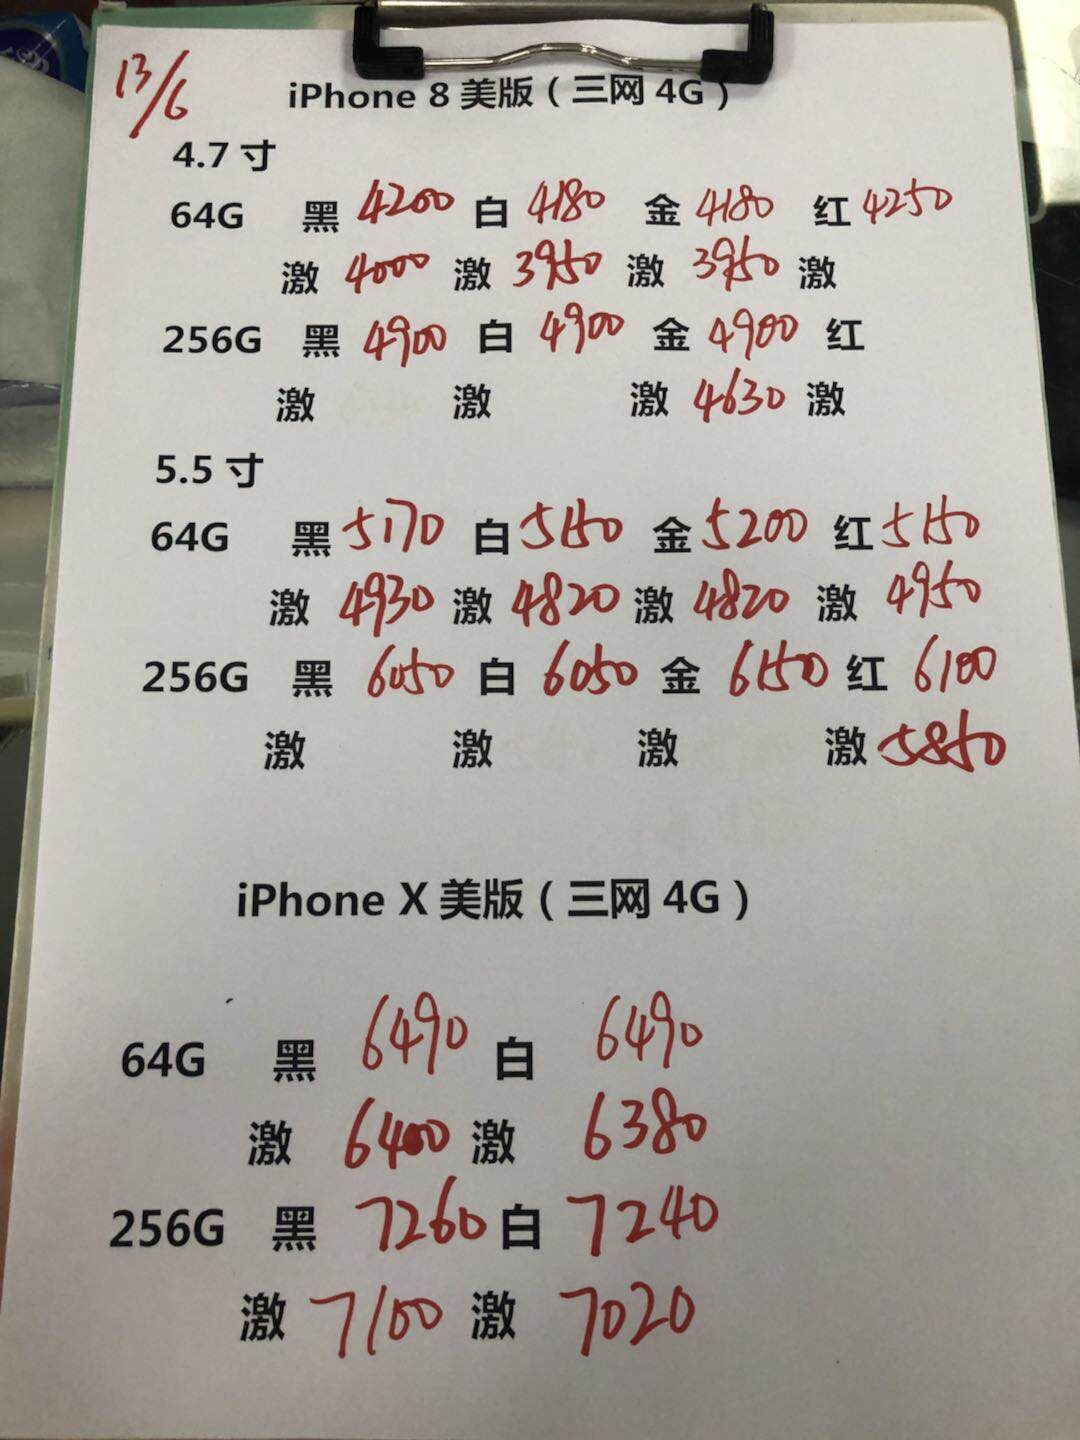 13/6
iPhone 8 美版（三网 4G）
4.7 寸
64G 黑 4200 白 4180 金 4180 红 4250
激 4000 激 3950 激 3950 激
256G 黑 4900 白 4900 金 4900 红
激 激 激 4630 激
5.5 寸
64G 黑 5170 白 5150 金 5200 红 5150
激 4930 激 4820 激 4820 激 4950
256G 黑 6050 白 6050 金 6150 红 6100
激 激 激 激 5850
iPhone X 美版（三网 4G）
64G 黑 6490 白 6490
激 6400 激 6380
256G 黑 7260 白 7240
激 7100 激 7020